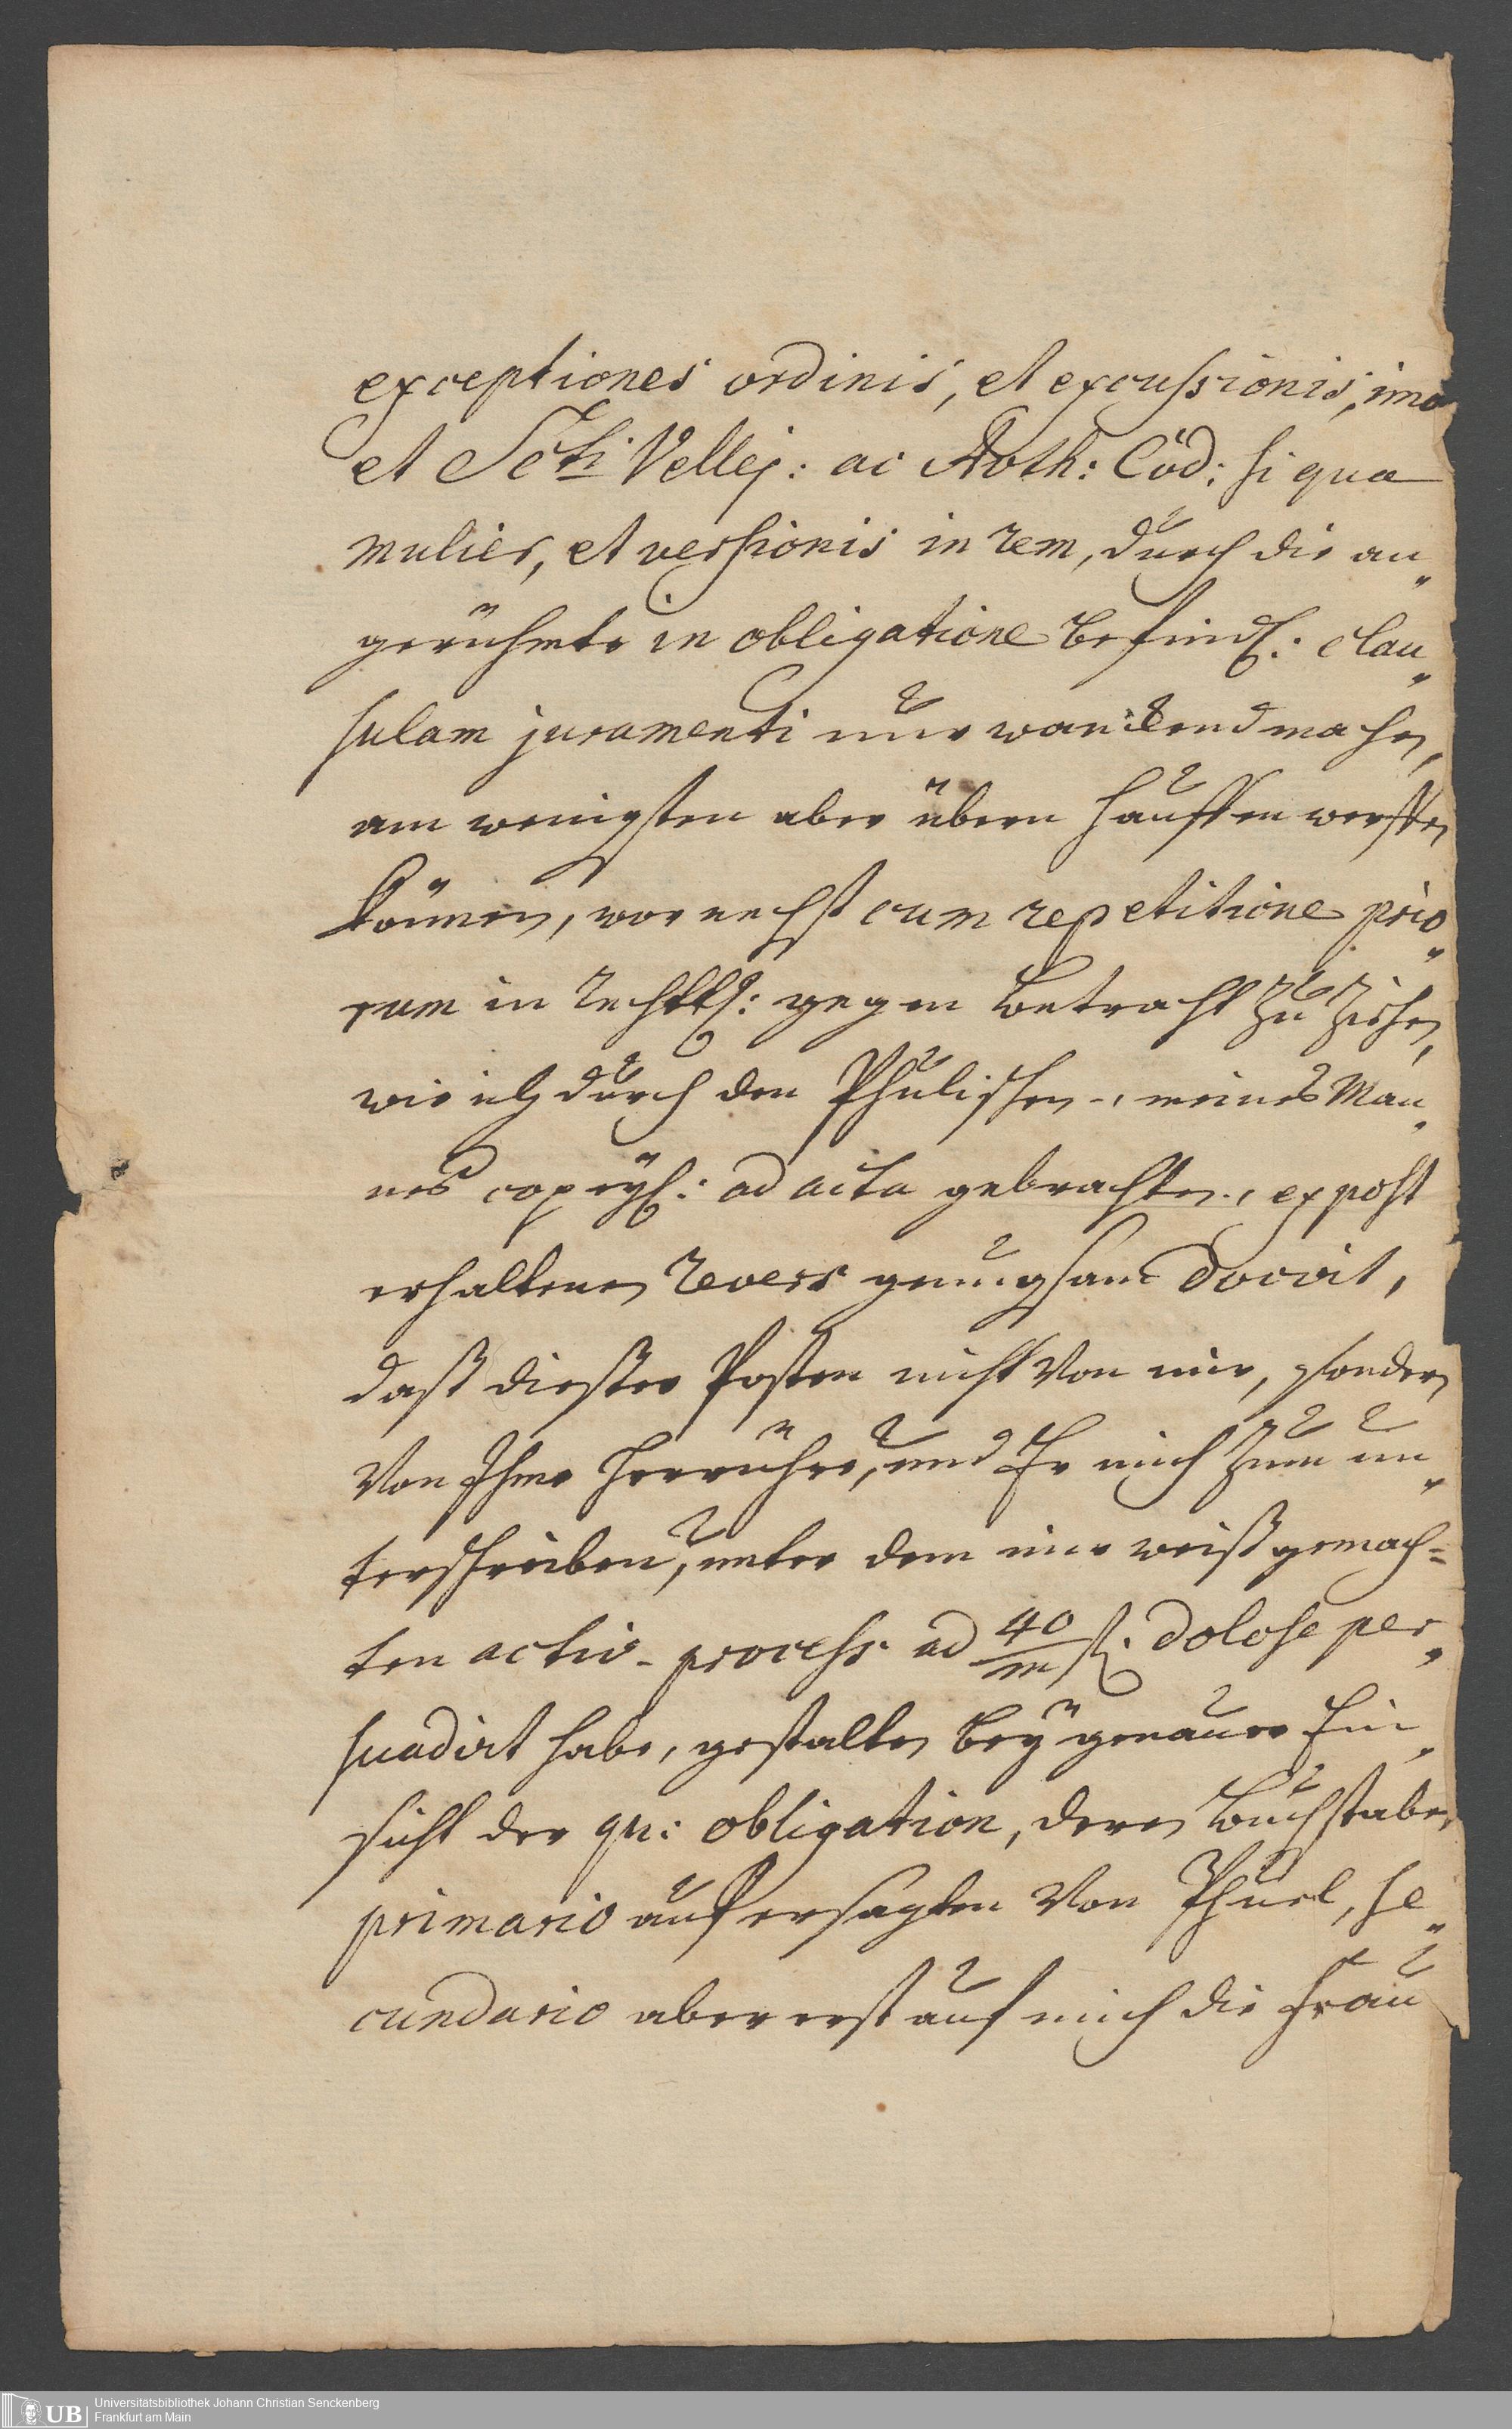 exceptiones ordinis, et excussionis, imo
et Scti Vellej: ac Auth: Cod: si qua
mulier, et versionis in rem, durch die an„
gerühmte in obligatione befindl: clau„
sulam juramenti nur wanckend machen,
am wenigsten aber übern Hauffen werffen
können, vor nechst cum repetitione prio„
rum in rechtl: gegen Betracht zu ziehen,
wie ich durch den Phulischen-, meines Man„
nes copeyl: ad acta gebrachten-, ex post
erhaltenen Revers genugsam docirt,
daß dießer Posten nicht von mir, sondern
von Ihme herrühre, und Er mich zum un„
terschreiben, unter dem mir weiß gemach=
ten activ-process ad 40/m fl. dolose per„
suadirt habe, gestalten bey genauer Ein„
sicht der qu: obligation, deren Buchstaben
primario auf ersagten von Phuel, se„
cundario aber erst auf mich die Frau
Universitätsbibliothek Johann Christian Senckenberg
Frankfurt am Main
UB